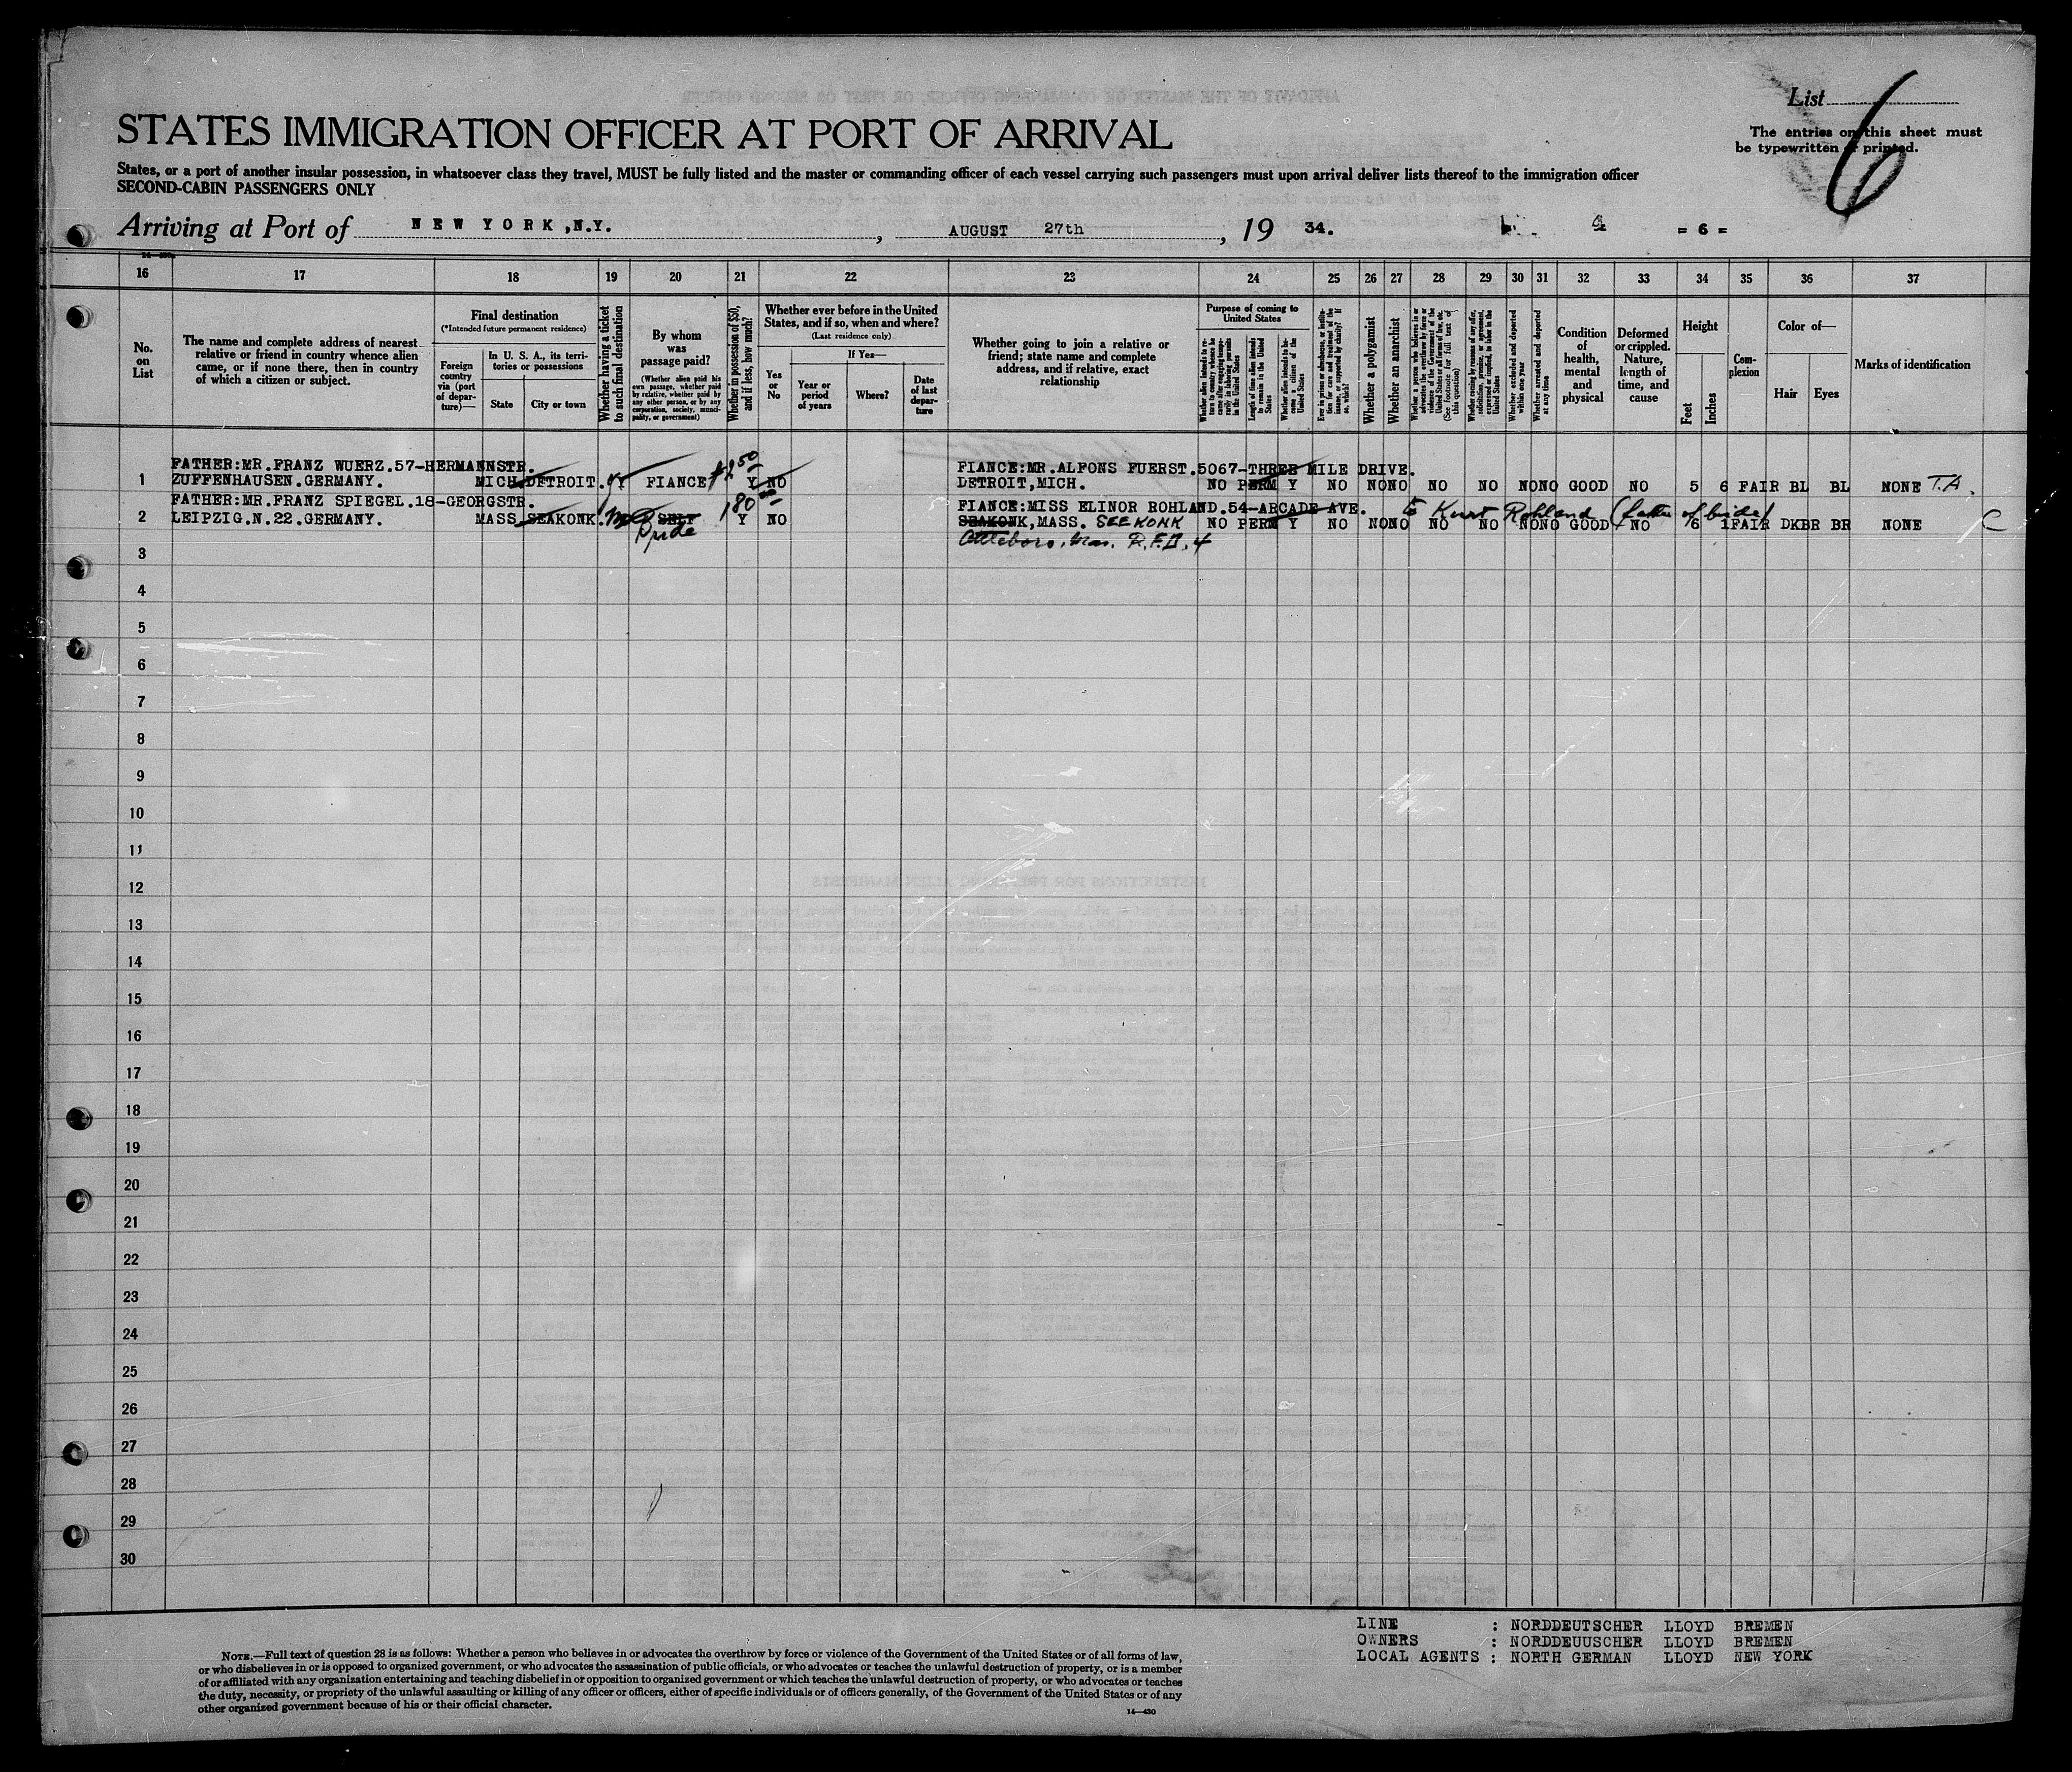 List 6
STATES IMMIGRATION OFFICER AT PORT OF ARRIVAL
The entries on this sheet must
be typewritten or printed.
States, or a port of another insular possession, in whatsoever class they travel, MUST be fully listed and the master or commanding officer of each vessel carrying such passengers must upon arrival deliver lists thereof to the immigration officer
SECOND-CABIN PASSENGERS ONLY
Arriving at Port of NEW YORK ,N.Y. , AUGUST 27th , 19 34. 4 = 6 =
16 17 18 19 20 21 22 23 24 25 26 27 28 29 30 31 32 33 34 35 36 37
No. on List
The name and complete address of nearest relative or friend in country whence alien came, or if none there, then in country of which a citizen or subject.
Final destination
(*Intended future permanent residence)
Foreign country via (port of departure)—
In U. S. A., its territories or possessions
State
City or town
Whether having a ticket to such final destination
By whom was passage paid?
(Whether alien paid his own passage, whether paid by relative, whether paid by any other person, or by any corporation, society, municipality, or government)
Whether in possession of $50, and if less, how much?
Whether ever before in the United States, and if so, when and where?
(Last residence only)
Yes or No
If Yes—
Year or period of years
Where?
Date of last departure
Whether going to join a relative or friend; state name and complete address, and if relative, exact relationship
Purpose of coming to United States
Length of time alien intends to remain in the United States
Whether alien intends to become a citizen of the United States
Whether a polygamist
Whether an anarchist
(See footnote for full text of this question)
Whether excluded and deported within one year
Whether arrested and deported at any time
Condition of health, mental and physical
Deformed or crippled. Nature, length of time, and cause
Height
Feet
Inches
Complexion
Color of—
Hair
Eyes
Marks of identification
FATHER:MR.FRANZ WUERZ.57-HERMANNSTR. $250 FIANCE:MR.ALFONS FUERST.5067-THREE MILE DRIVE.
1 ZUFFENHAUSEN.GERMANY. MICH DETROIT. Y FIANCE Y NO DETROIT,MICH. NO PERM Y NO NONO NO NO NONO GOOD NO 5 6 FAIR BL BL NONE T.A.
FATHER:MR.FRANZ SPIEGEL.18-GEORGSTR. 180 FIANCE:MISS ELINOR ROHLAND.54-ARCADE AVE. Kurt Rohland (father of bride)
2 LEIPZIG.N.22.GERMANY. MASS SEAKONK. SELF Y NO SEAKONK,MASS. SEEKONK NO PERM Y NO NONO NO NO NONO GOOD NO 6 1 FAIR DKBR BR NONE C
Bride Attleboro, Mass. R.F.D. 4
3
4
5
6
7
8
9
10
11
12
13
14
15
16
17
18
19
20
21
22
23
24
25
26
27
28
29
30
LINE : NORDDEUTSCHER LLOYD BREMEN
OWNERS : NORDDEUUSCHER LLOYD BREMEN
LOCAL AGENTS : NORTH GERMAN LLOYD NEW YORK
NOTE.—Full text of question 28 is as follows: Whether a person who believes in or advocates the overthrow by force or violence of the Government of the United States or of all forms of law,
or who disbelieves in or is opposed to organized government, or who advocates the assassination of public officials, or who advocates or teaches the unlawful destruction of property, or is a member
of or affiliated with any organization entertaining and teaching disbelief in or opposition to organized government or which teaches the unlawful destruction of property, or who advocates or teaches
the duty, necessity, or propriety of the unlawful assaulting or killing of any officer or officers, either of specific individuals or of officers generally, of the Government of the United States or of any
other organized government because of his or their official character.
14—430